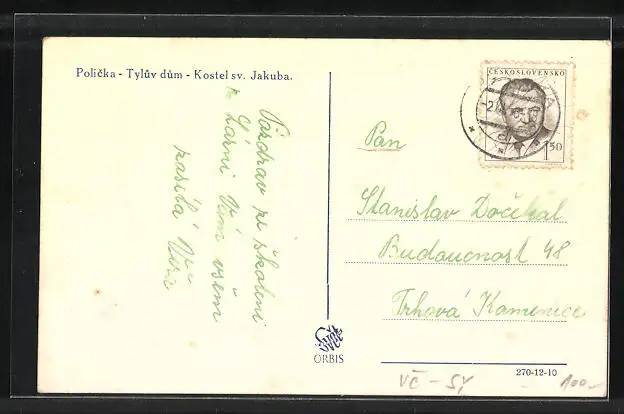 Polička - Tylův dům - Kostel sv. Jakuba.
Pozdrav ze školení
Vám všem
zasílá Věra
ČESKOSLOVENSKO
1.50
Pan
Stanislav Dočkal
Budoucnost 48
Trhová Kamenice
Svět
ORBIS
270-12-10
VČ - SY
100.-